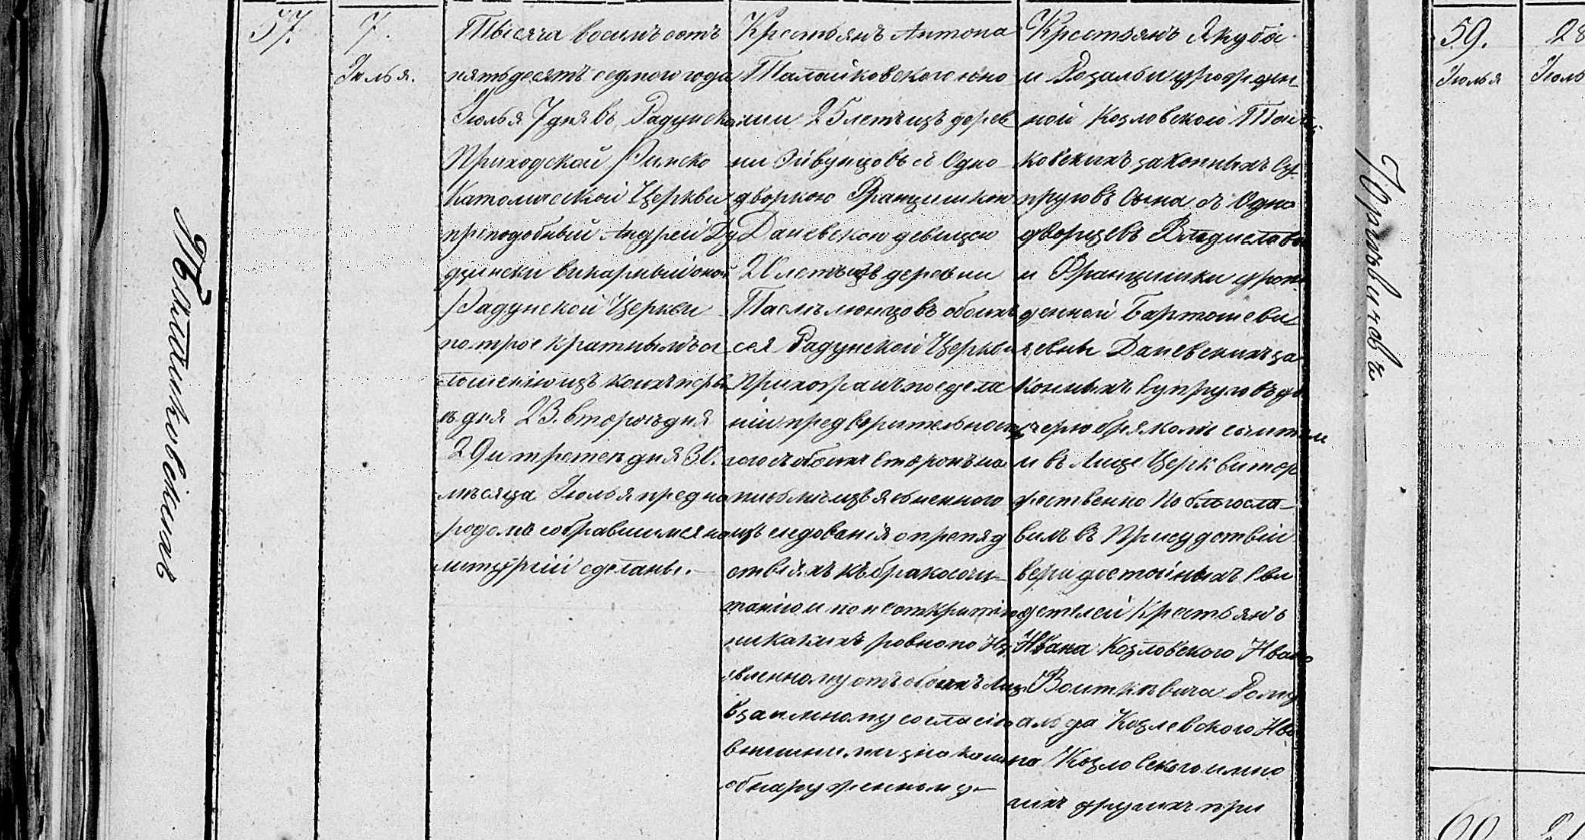 57.
7.
Іюлья.
Талайковскихъ
Тысяча восимъ сотъ
пятьдесятъ седмого года
Іюлья 7 дня въ Радунско
Приходской Римско
Католической Церкви
преподобный Андрей Ду
дзински викарный оной
Радунской Церкви
по трое кратнымъ ог
лошеніи изъ коихъ перв
въ дня 23. вторые дня
29 и третеи дня 30.
мѣсяца Іюлья предъ на
родомъ собравшимся на
литургіи сделаны.
Крестьянъ Антона
Талайковского юно
шы 25 летъ изъ дерев
ни съ Одно
дворкою Францишкою
Даневскою девицою
летъ изъ деревни
обоихъ
сея Радунской Церкви
прихожанъ по здела
ніи предварительного
того съ обоихъ Сторонъ на
письмѣ изъясненного
изследованія о препяд
ствіяхъ къ бракосоче
танію и по неоткритію
никакихъ ровно по Изъ
явленному отъ обоихъ Лицъ
взаимному согласію
внешними знаками
обнаруженному
Крестьянъ Якуба
и Розальи урожден
ной Козловской Талай
ковскихъ законныхъ Су
пруговъ Сына съ Одно
дворцевъ Владислава
и Францишки урож
денной Бартошеви
чевны Даневскихъ за
конныхъ Супруговъ до
черю бракомъ сочитал
и въ Лице Церкви тор
жественно поблагосла
вилъ въ Присудствіи
вери достойныхъ Сви
детелей Крестьянъ
Ивана Козловского Ивана
Войткѣвича Рому
альда Козлевского Ива
на Козловского и мно
гихъ другихъ при
59.
Іюлья
28
Іюль
60